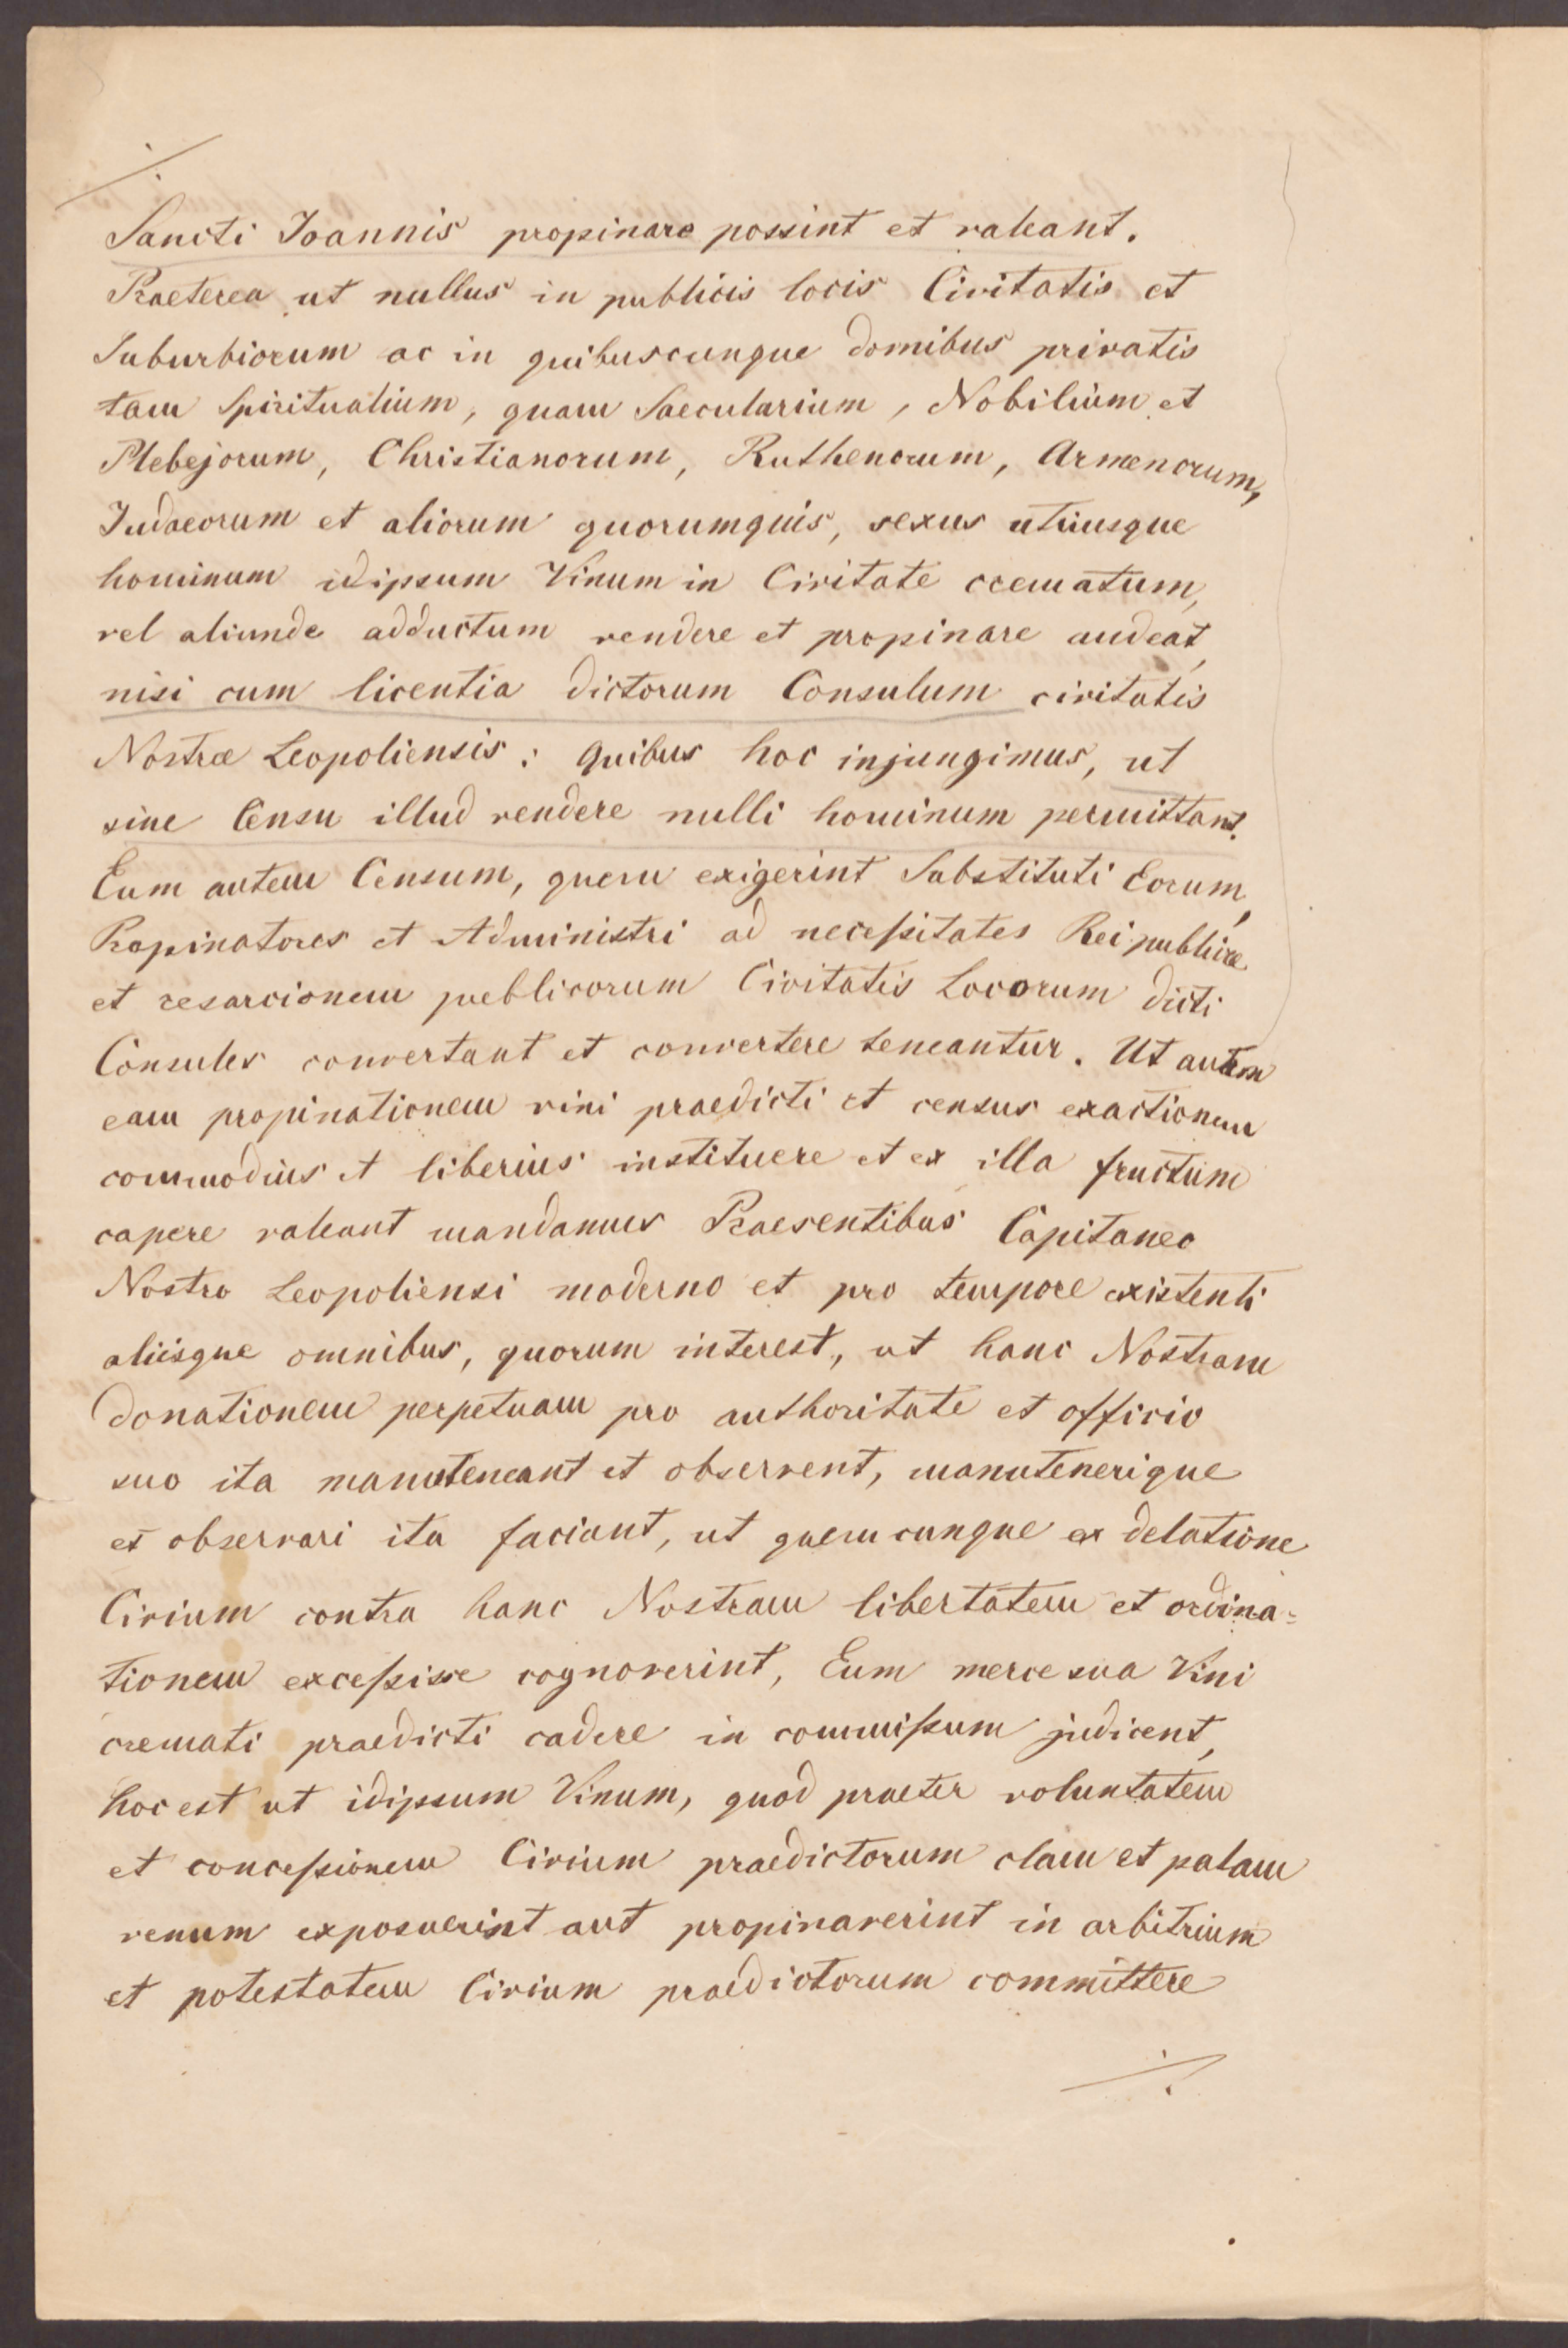 ./.
Sancti Joannis propinare possint et valeant.
Praeterea ut nullus in publicis locis Civitatis et
Suburbiorum ac in quibuscunque domibus privatis
tam Spiritualium, quam Saecularium, Nobilium et
Plebejorum, Christianorum, Ruthenorum, Armenorum,
Judaeorum et aliorum quorumquis, sexus utriusque
hominum idipsum Vinum in Civitate crematum,
vel aliunde adductum vendere et propinare audeat,
nisi cum licentia dictorum Consulum civitatis
Nostræ Leopoliensis: quibus hoc injungimus, ut
sine Censu illud vendere nulli hominum permittant.
Eum autem Censum, quem exigerint Substituti Eorum,
Propinatores et Administri ad necessitates Reipublicæ
et resarcionem publicorum Civitatis Locorum dicti
Consules convertant et convertere teneantur. Ut autem
eam propinationem vini praedicti et census exactionem
commodius et liberius instituere et ex illa fructum
capere valeant mandamus Praesentibus Capitaneo
Nostro Leopoliensi moderno et pro tempore existenti
aliisque omnibus, quorum interest, ut hanc Nostram
donationem perpetuam pro authoritate et officio
suo ita manuteneant et observent, manutenerique
et observari ita faciant, ut quemcunque ex delatione
Civium contra hanc Nostram libertatem et ordina=
tionem excessisse cognoverint, Eum merce sua Vini
cremati praedicti cadere in commissum judicent,
hoc est ut idipsum Vinum, quod praeter voluntatem
et concessionem Civium praedictorum clam et palam
venum exposuerint aut propinaverint in arbitrium
et potestatem Civium praedictorum committere
./.